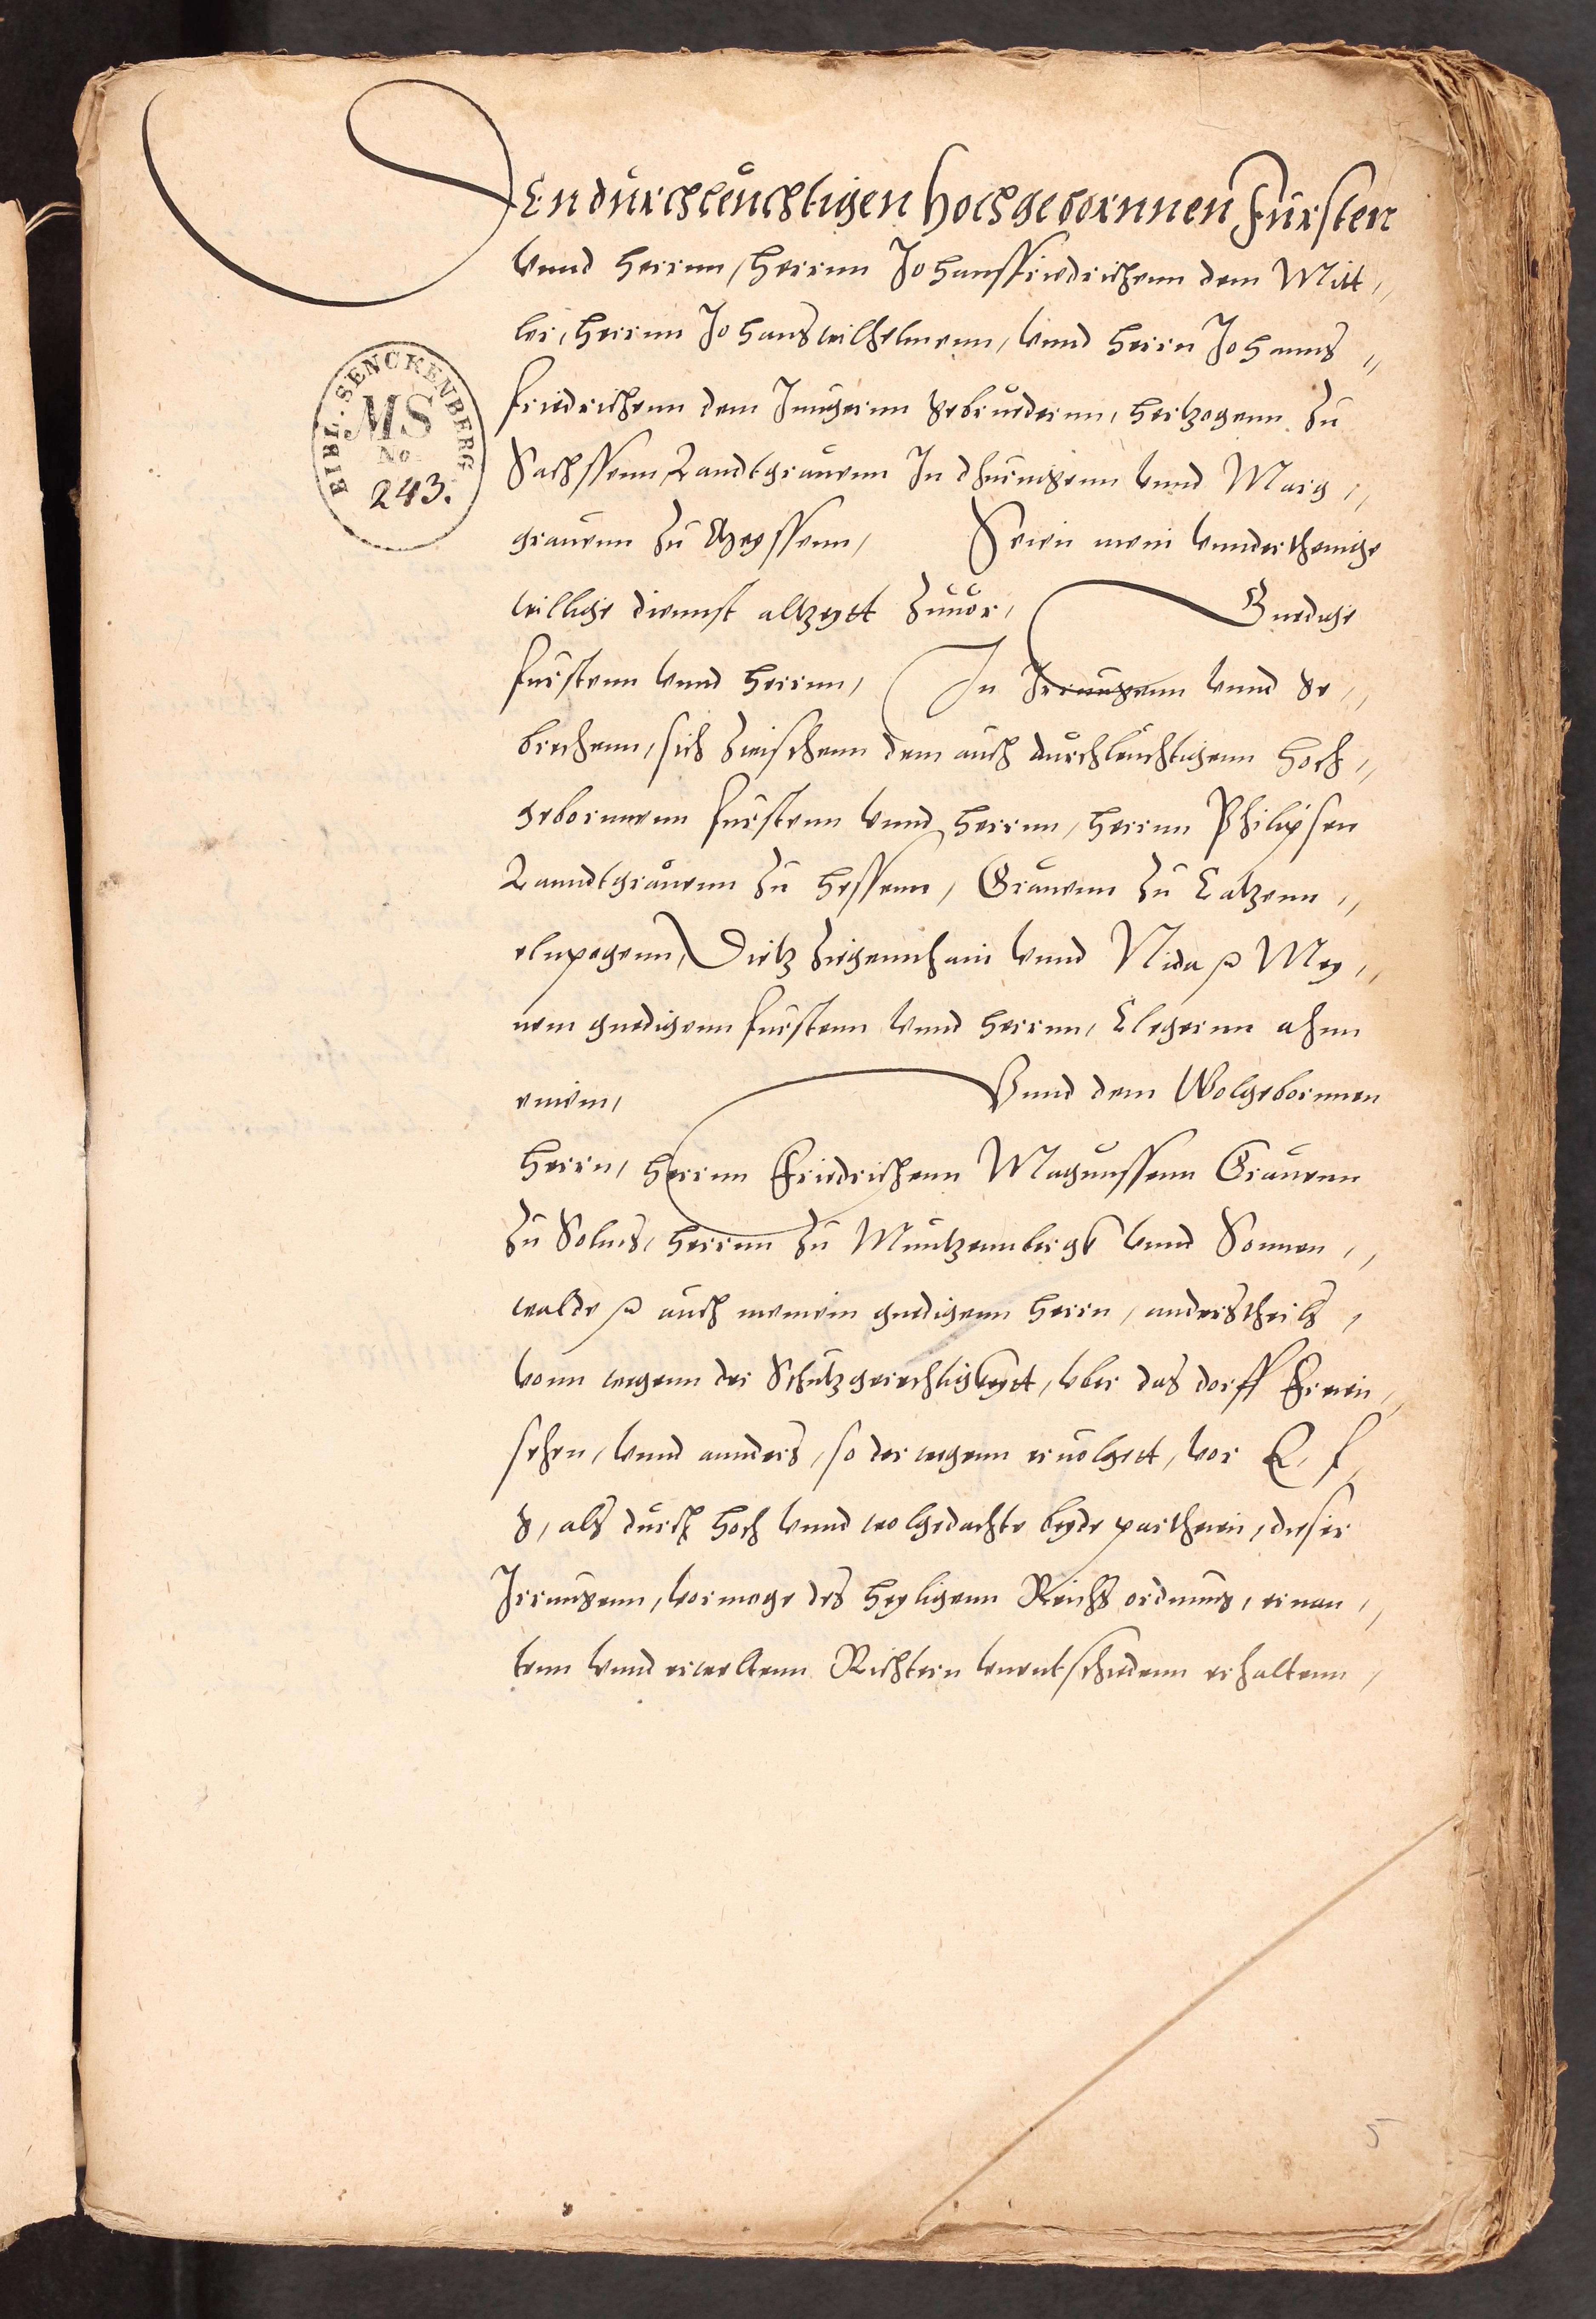 DEn durchleuchtigen Hochgebornnen Fursten
vnnd Herrnn, Herrnn Johannsfriedrichenn dem Mitt„
ler, Herrnn Johanswilhelmenn, vnnd Herrn Johanns„
friedrichenn dem Jungernn gebruedernn, Hertzogenn zu
Sachssenn Landtgrauenn In dhuringenn vnnd Marg„
grauenn zu Meyssenn, Seien mein vnnderthenige
willige diennst altzeytt zuuor, Gnedige
furstenn vnnd Herrnn, In Irrungenn vnnd ge„
brechenn, sich zwischenn dem auch durchleuchtigenn Hoch„
gebornnenn furstenn vnnd Herrnn, Herrnn Philipsen
Lanndtgrauenn zu Hessenn, Grauenn zu Catzenn„
elnpogenn, Dietz Ziegennhain vnnd Nida ꝛc Mey„
nem gnedigenn furstenn vnnd Herrnn, Clegernn ahnn
einem, Vnnd dem Wolgebornnen
Herrn, Herrnn Friedrichenn Magnussenn Grauenn
zu Solms, Herrnn zu Muntzennbergk vnnd Sonnen„
walde ꝛc auch meinem gnedigenn Herrn, anderstheils,
vonn wegenn der Schutzgerechtigkeytt, vber das dorff Freien„
sehen, vnnd annders, so derwegenn eruolgett, vor E. f.
g, als durch hoch vnnd wolgedachte beyde partheien, dieser
Irrungenn, vermoge des heyligenn Reichs ordnung, ernan„
tenn vnnd erweltenn Richtern vnentschiedenn erhaltenn,
BIBL. SENCKENBERG
MS
No.
243.
5